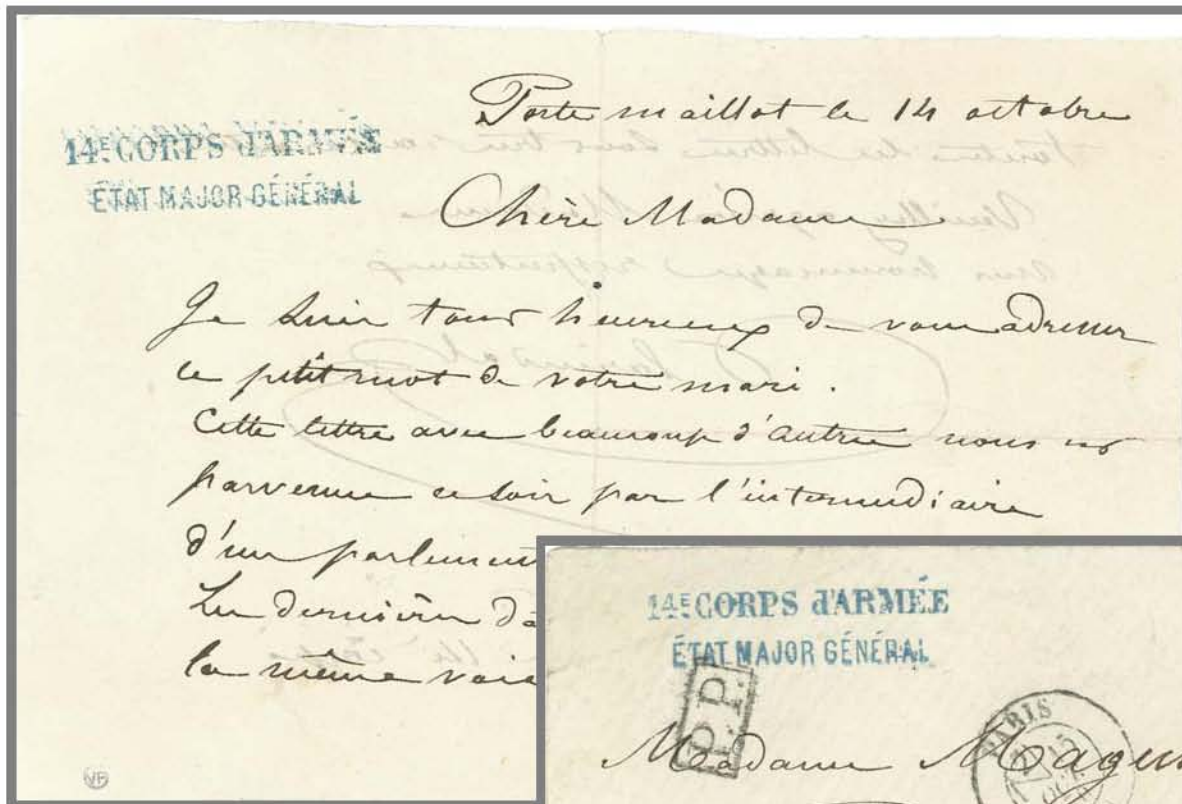 Porte maillot le 14 octobre
14E CORPS d'ARMÉE
ÉTAT MAJOR GÉNÉRAL
Chère Madame
Je suis tout heureux de vous adresser
ce petit mot de votre mari.
Cette lettre avec beaucoup d'autres nous est
parvenue ce soir par l'intermédiaire
d'un parlement
Les dernières
la même voie
14E CORPS d'ARMÉE
ÉTAT MAJOR GÉNÉRAL
P.P.
PARIS
Madame